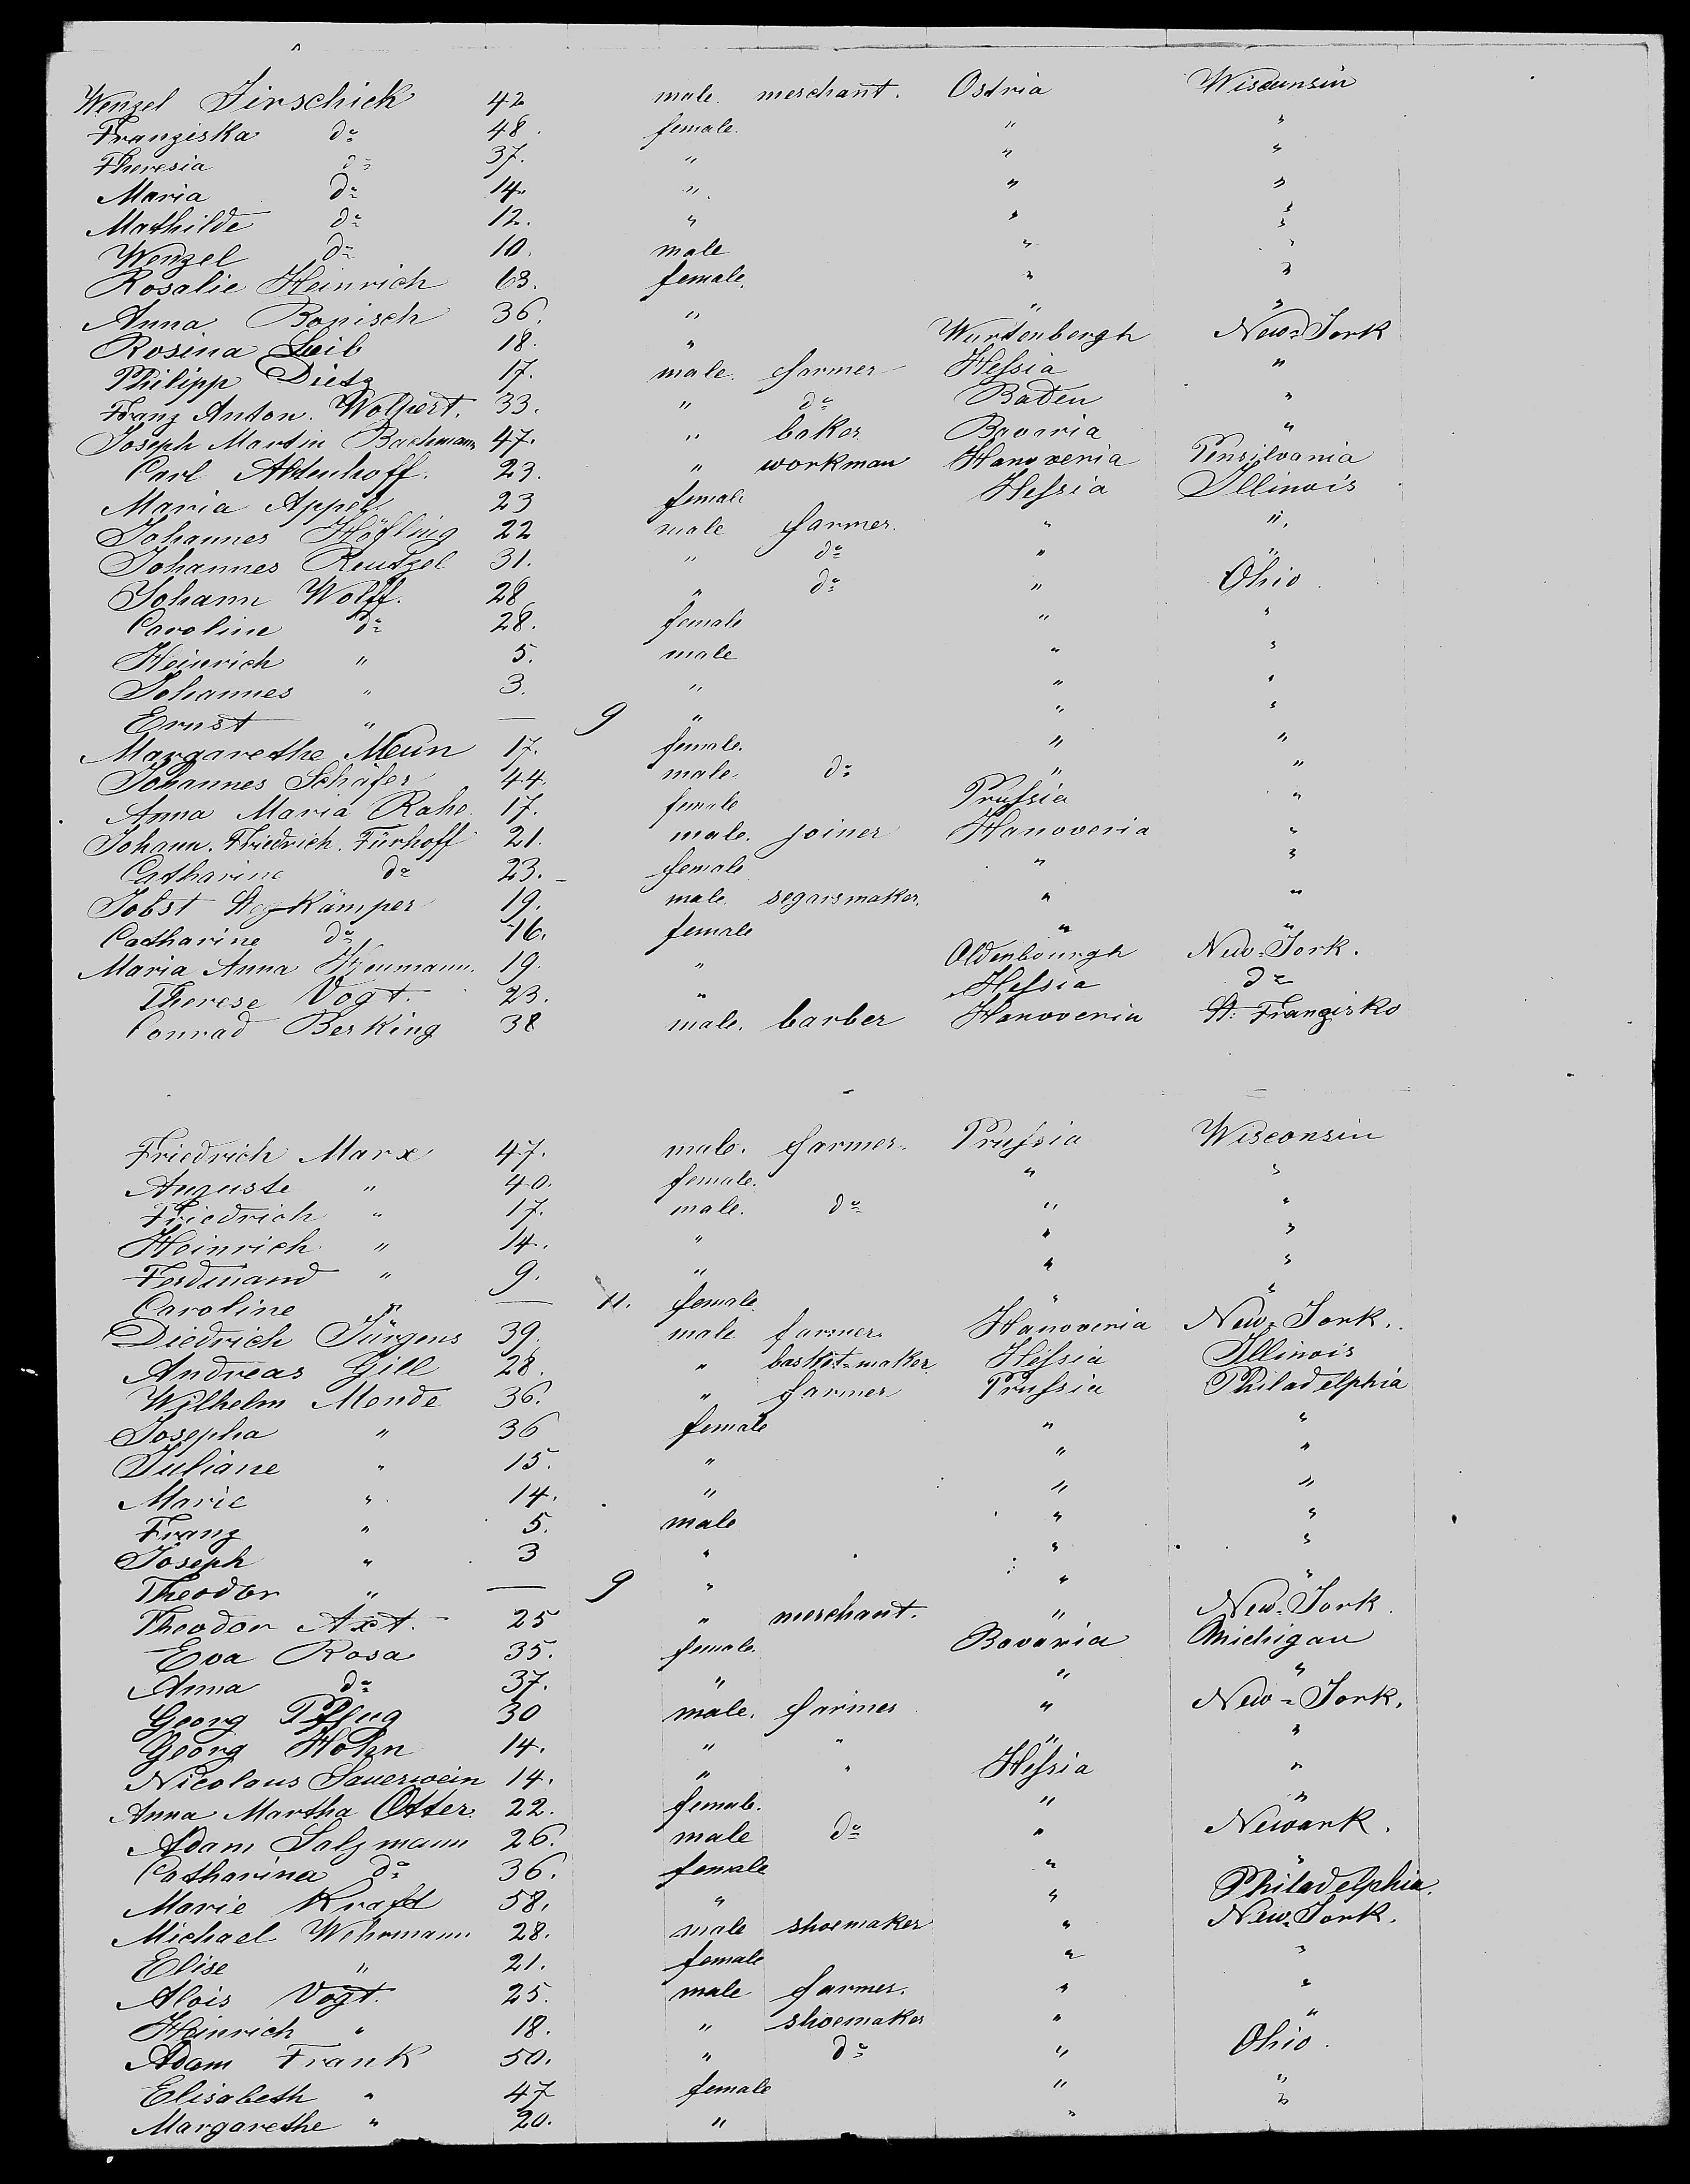 Wenzel Jirschick 42 male. merchant. Ostria Wiscunsin
Franziska do 48. female. " "
Theresia do 37. " " "
Maria do 14. " " "
Mathilde do 12. " " "
Wenzel do 10. male " "
Rosalie Heinrich 63. female. " "
Anna Bonisch 36. " " "
Rosina Leib 18. " Wurtenbergh New=York
Philipp Dietz 17. male. farmer Hessia "
Franz Anton. Wolpert. 33. " do Baden "
Joseph Martin Bachmann 47. " baker Bavaria "
Carl 23. " workman Hanoveria Pensilvania
Maria Appel 23 female Hessia Illinois
Johannes Höfling 22 male farmer. " "
Johannes Reutzel 31. " do " "
Johann Wolff. 28 " do " Ohio.
Caroline do 28. female " "
Heinrich " 5. male " "
Johannes " 3. " " "
Ernst " — 9 " " "
Margarethe Meun 17. female. " "
Johannes Schäfer 44. male. do " "
Anna Maria Rahe 17. female Prussia "
Johann. Friedrich. Fürhoff 21. male. joiner Hanoveria "
Catharine do 23. female " "
Jobst 19. male segarsmaker. " "
Catharine do 16. female " "
Maria Anna 19. " Oldenbourgh New=York.
Therese Vogt. 23. " Hessia do
Conrad Berking 38 male. barber Hanoveria St: Franzisko
Friedrich Marx 47. male. farmer. Prussia Wisconsin
Auguste " 40. female. " "
Friedrich " 17. male. do " "
Heinrich " 14. " " "
Ferdinand " 9. " " "
Caroline " — 11. female " "
Diedrich Jürgens 39. male farmer. Hanoveria New=York.
Andreas Gill 28. " basket=maker Hessia Illinois
Wilhelm Monde 36. " farmer Prussia Philadelphia
Josepha " 36 female " "
Juliane " 15. " " "
Marie " 14. " " "
Franz " 5. male " "
Joseph " 3 " " "
Theodor " — 9 " " "
Theodor Axt. 25 " merchant. " New=York.
Eva Rosa 35. female. Bovaria Michigan
Anna do 37. " " "
Georg Pflug 30 male. farmer " New=York.
Georg Hohn 14. " " " "
Nicolaus Sauerwein 14. " " Hessia "
Anna Martha Otter 22. female. " "
Adam Salzmann 26. male do " Newark.
Catharina do 36. female " "
Marie Kraft 58. " " Philadelphia.
Michael Wehrmann 28. male shoemaker " New=York.
Elise " 21. female " "
Alois Vogt. 25. male farmer. " "
Heinrich " 18. " shoemaker " "
Adam Frank 50. " do " Ohio.
Elisabeth " 47 female " "
Margarethe " 20. " " "